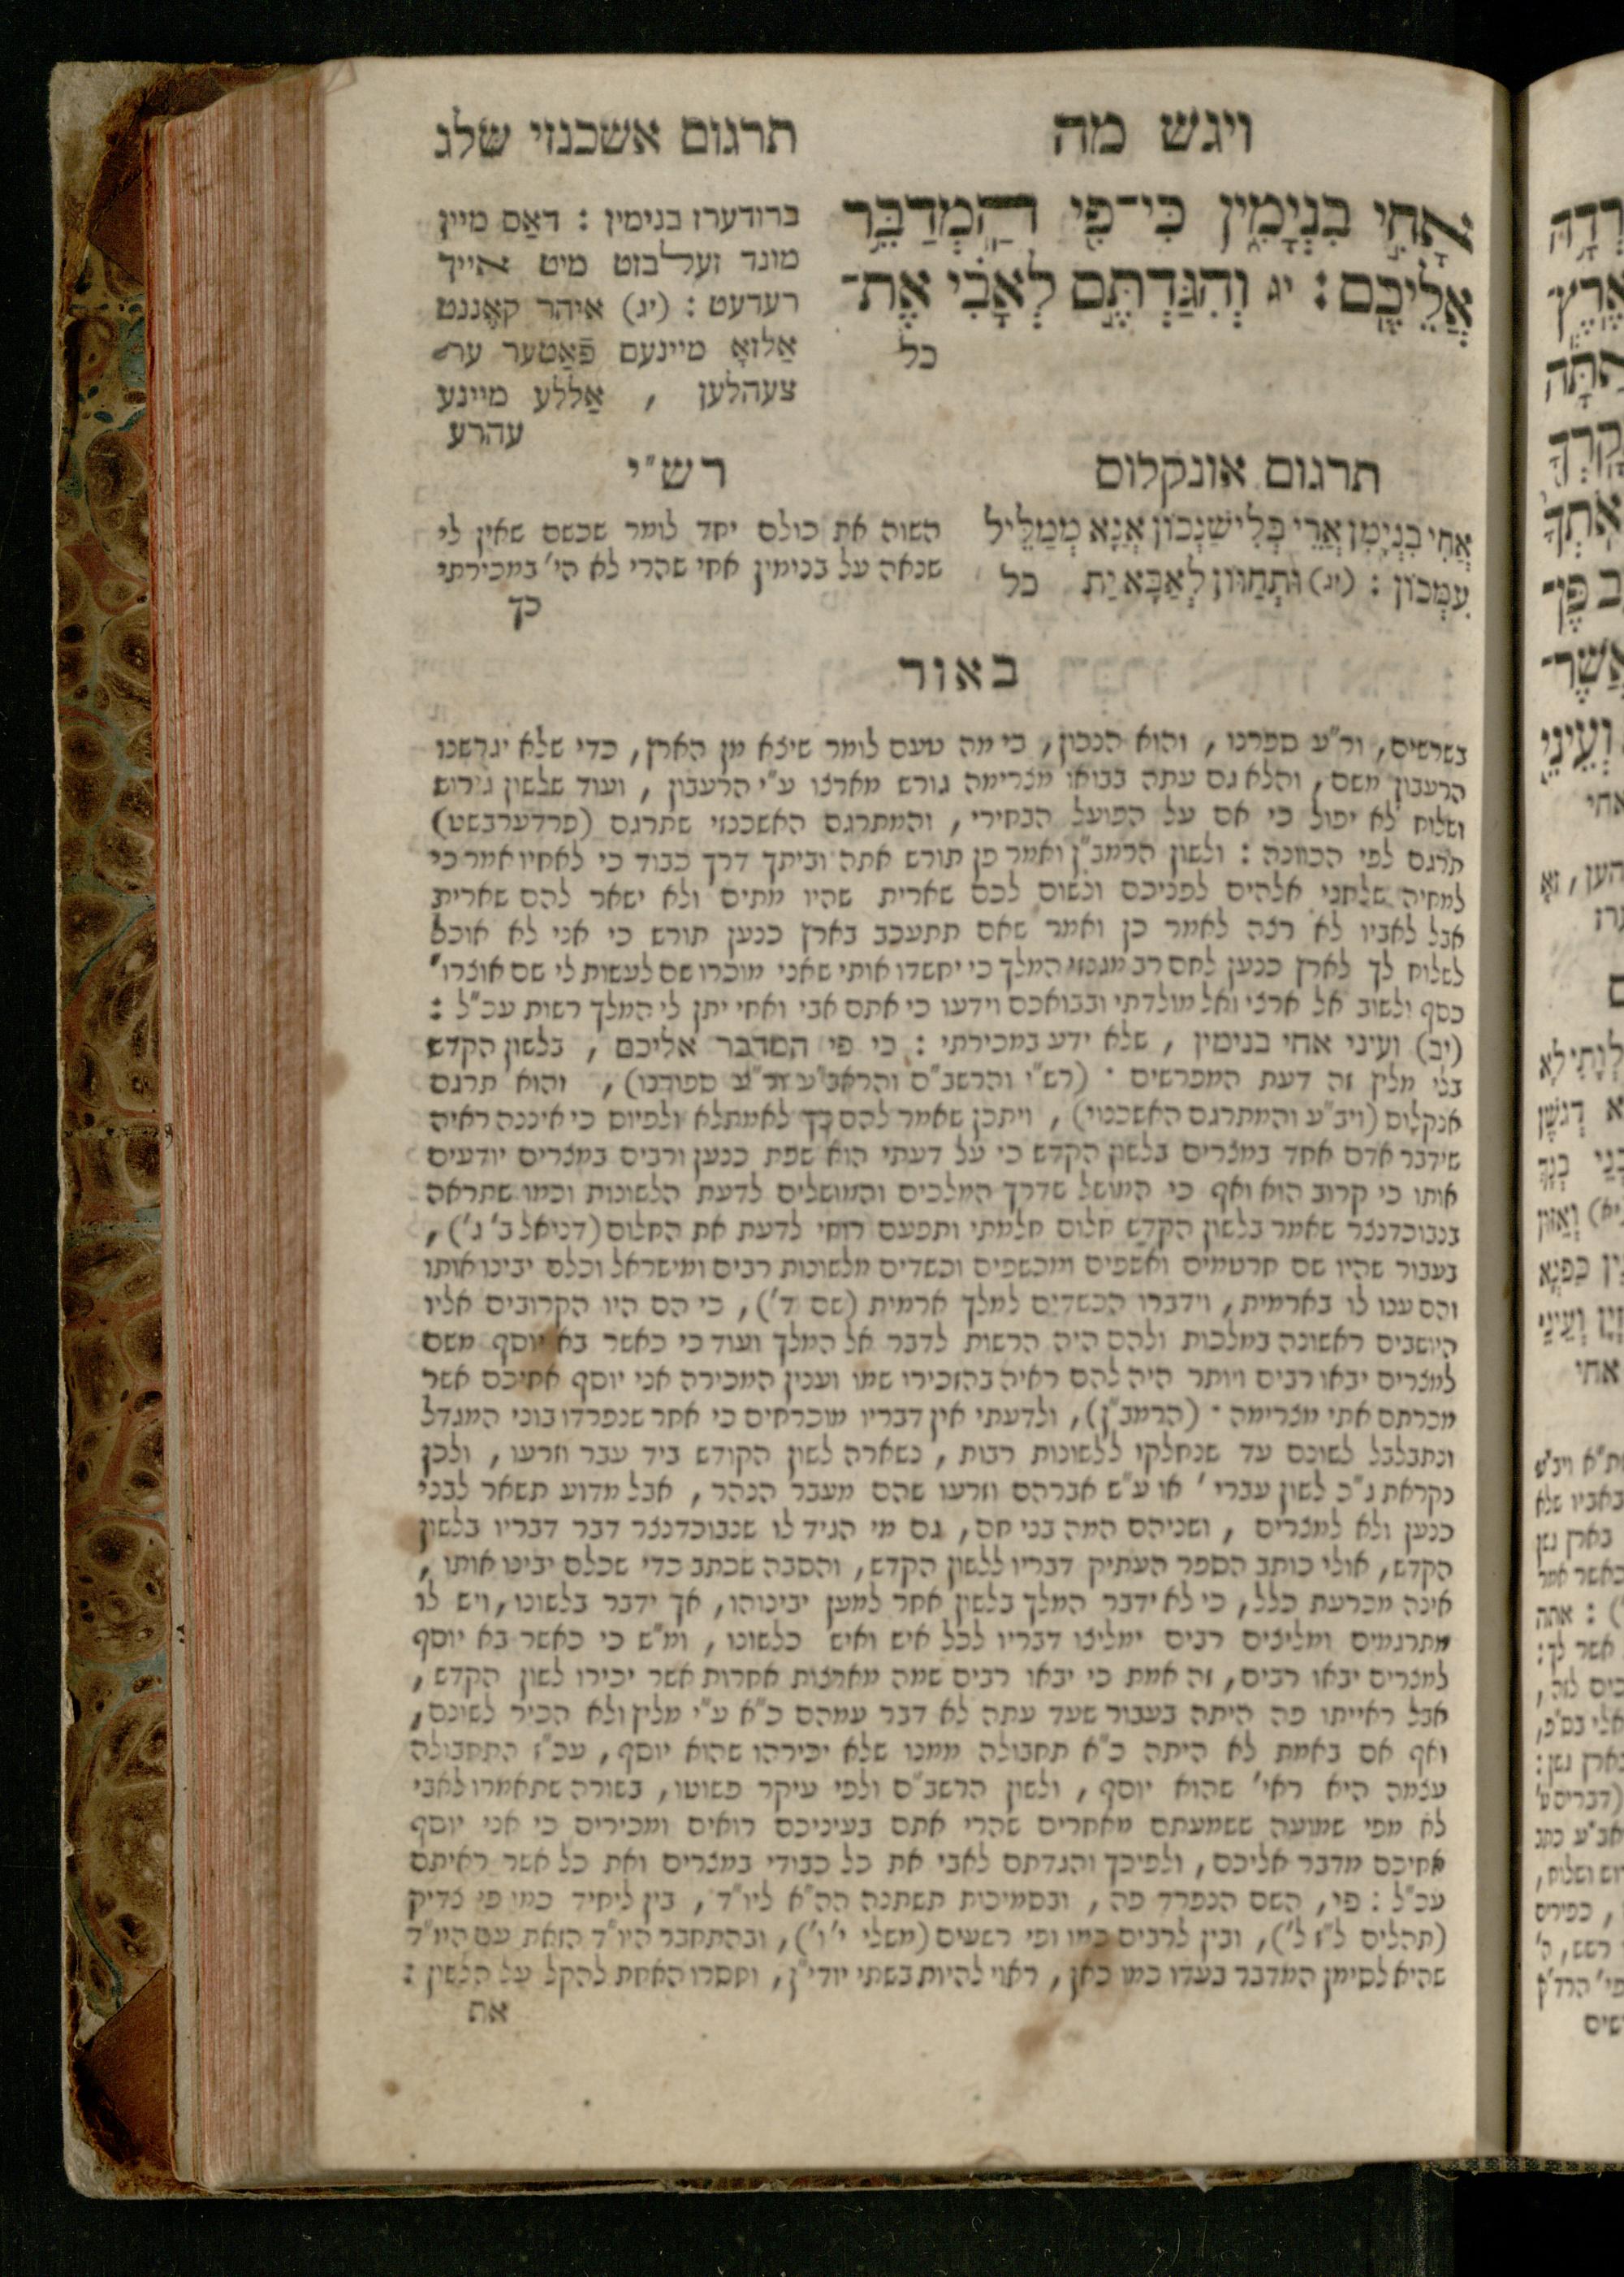 ויגש מה
תרגום אשכנזי שלג
אָחִ֣י בִנְיָמִ֑ין כִּי־פִ֖י הַֽמְדַבֵּ֥ר
אֲלֵיכֶֽם׃ יג וְהִגַּדְתֶּ֣ם לְאָבִ֗י אֶת־
כל
ברודערז בנימין : דאַס מיין
מונד זעלבזט מיט אייך
רעדעט : (יג) איהר קאֶננט
אַלזאָ מיינעם פֿאַטער ער־
צעהלען , אַללע מיינע
עהרע
תרגום אונקלוס
אֲחִי בִנְיָמִן אֲרֵי בְּלִישַׁנְכוֹן אֲנָא מְמַלֵּיל
עִמְּכוֹן : (יג) וּתְחַוּוּן לְאַבָּא יַת כל
רש"י
השוה את כולם יחד לומר שכשם שאין לי
שנאה על בנימין אחי שהרי לא הי' במכירתי
כך
באור
בשרשים, ור"ע ספרנו , והוא הנכון, כי מה טעם לומר שיצא מן הארץ, כדי שלא יגרשנו
הרעבון משם, והלא גם עתה בבואו מצרימה גורש מארצו ע"י הרעבון , ועוד שלשון גירוש
ושלוח לא יפול כי אם על הפועל הבחירי, והמתרגם האשכנזי שתרגם (פרדערבשט)
תרגם לפי הכוונה : ולשון הרמב"ן ואמר פן תורש אתה וביתך דרך כבוד כי לאחיו אמר כי
למחיה שלחני אלהים לפניכם ולשום לכם שארית שהיו מתים ולא ישאר להם שארית
אבל לאביו לא רצה לאמר כן ואמר שאם תתעכב בארץ כנען תורש כי אני לא אוכל
לשלוח לך לארץ כנען לחם רב מגנזי המלך כי יחשדו אותי שאני מוכרו שם לעשות לי שם אוצרו'
כסף ולשוב אל ארצי ואל מולדתי ובבואכם וידעו כי אתם אבי ואחי יתן לי המלך רשות עכ"ל :
(יב) ועיני אחי בנימין , שלא ידע במכירתי : כי פי המדבר אליכם , בלשון הקדש
בלי מליץ זה דעת המפרשים · (רש"י והרשב"ם והראב"ע ור"ע ספורנו) , והוא תרגם
אנקלוס (ויב"ע והמתרגם האשכנזי) , ויתכן שאמר להם כך לאמתלא ולפיוס כי איננה ראיה
שידבר אדם אחד במצרים בלשון הקדש כי על דעתי הוא שפת כנען ורבים במצרים יודעים
אותו כי קרוב הוא ואף כי המושל שדרך המלכים והמושלים לדעת הלשונות וכמו שתראה
בנבוכדנצר שאמר בלשון הקדש חלום חלמתי ותפעם רוחי לדעת את החלום (דניאל ב' ג') ,
בעבור שהיו שם חרטמים ואשפים ומכשפים וכשדים מלשונות רבים ומישראל וכלם יבינו אותו
והם ענו לו בארמית, וידברו הכשדים למלך ארמית (שם ד'), כי הם היו הקרובים אליו
היושבים ראשונה במלכות ולהם היה הרשות לדבר אל המלך ועוד כי כאשר בא יוסף משם
למצרים יבאו רבים ויותר היה להם ראיה בהזכירו שמו וענין המכירה אני יוסף אחיכם אשר
מכרתם אתי מצרימה · (הרמב"ן), ולדעתי אין דבריו מוכרחים כי אחר שנפרדו בוני המגדל
ונתבלבל לשונם עד שנחלקו ללשונות רבות , נשארה לשון הקודש ביד עבר וזרעו , ולכן
נקראת ג"כ לשון עברי' או ע"ש אברהם וזרעו שהם מעבר הנהר , אבל מדוע תשאר לבני
כנען ולא למצרים , ושניהם המה בני חם, גם מי הגיד לו שנבוכדנצר דבר דבריו בלשון
הקדש, אולי כותב הספר העתיק דבריו ללשון הקדש, והסבה שכתב כדי שכלם יבינו אותו ,
אינה מכרעת כלל, כי לא ידבר המלך בלשון אחר למען יבינוהו, אך ידבר בלשונו, ויש לו
מתרגמים ומליצים רבים ימליצו דבריו לכל איש ואיש כלשונו , ומ"ש כי כאשר בא יוסף
למצרים יבאו רבים, זה אמת כי יבאו רבים שמה מארצות אחרות אשר יכירו לשון הקדש ,
אבל ראייתו פה היתה בעבור שעד עתה לא דבר עמהם כ"א ע"י מליץ ולא הכיר לשונם,
ואף אם באמת לא היתה כ"א תחבולה ממנו שלא יכירהו שהוא יוסף , עכ"ז התחבולה
עצמה היא ראי' שהוא יוסף , ולשון הרשב"ם ולפי עיקר פשוטו, בשורה שתאמרו לאבי
לא מפי שמועה ששמעתם מאחרים שהרי אתם בעיניכם רואים ומכירים כי אני יוסף
אחיכם מדבר אליכם , ולפיכך והגדתם לאבי את כל כבודי במצרים ואת כל אשר ראיתם
עכ"ל : פי , השם הנפרד פה , ובסמיכות תשתנה הה"א ליו"ד , בין ליחיד כמו פי צדיק
(תהלים ל"ז ל'), ובין לרבים כמו ופי רשעים (משלי י' ו'), ובהתחבר היו"ד הזאת עם היו"ד
שהיא לסימן המדבר בעדו כמו כאן, ראוי להיות בשתי יודי"ן , וחסרו האחת להקל על הלשון :
את